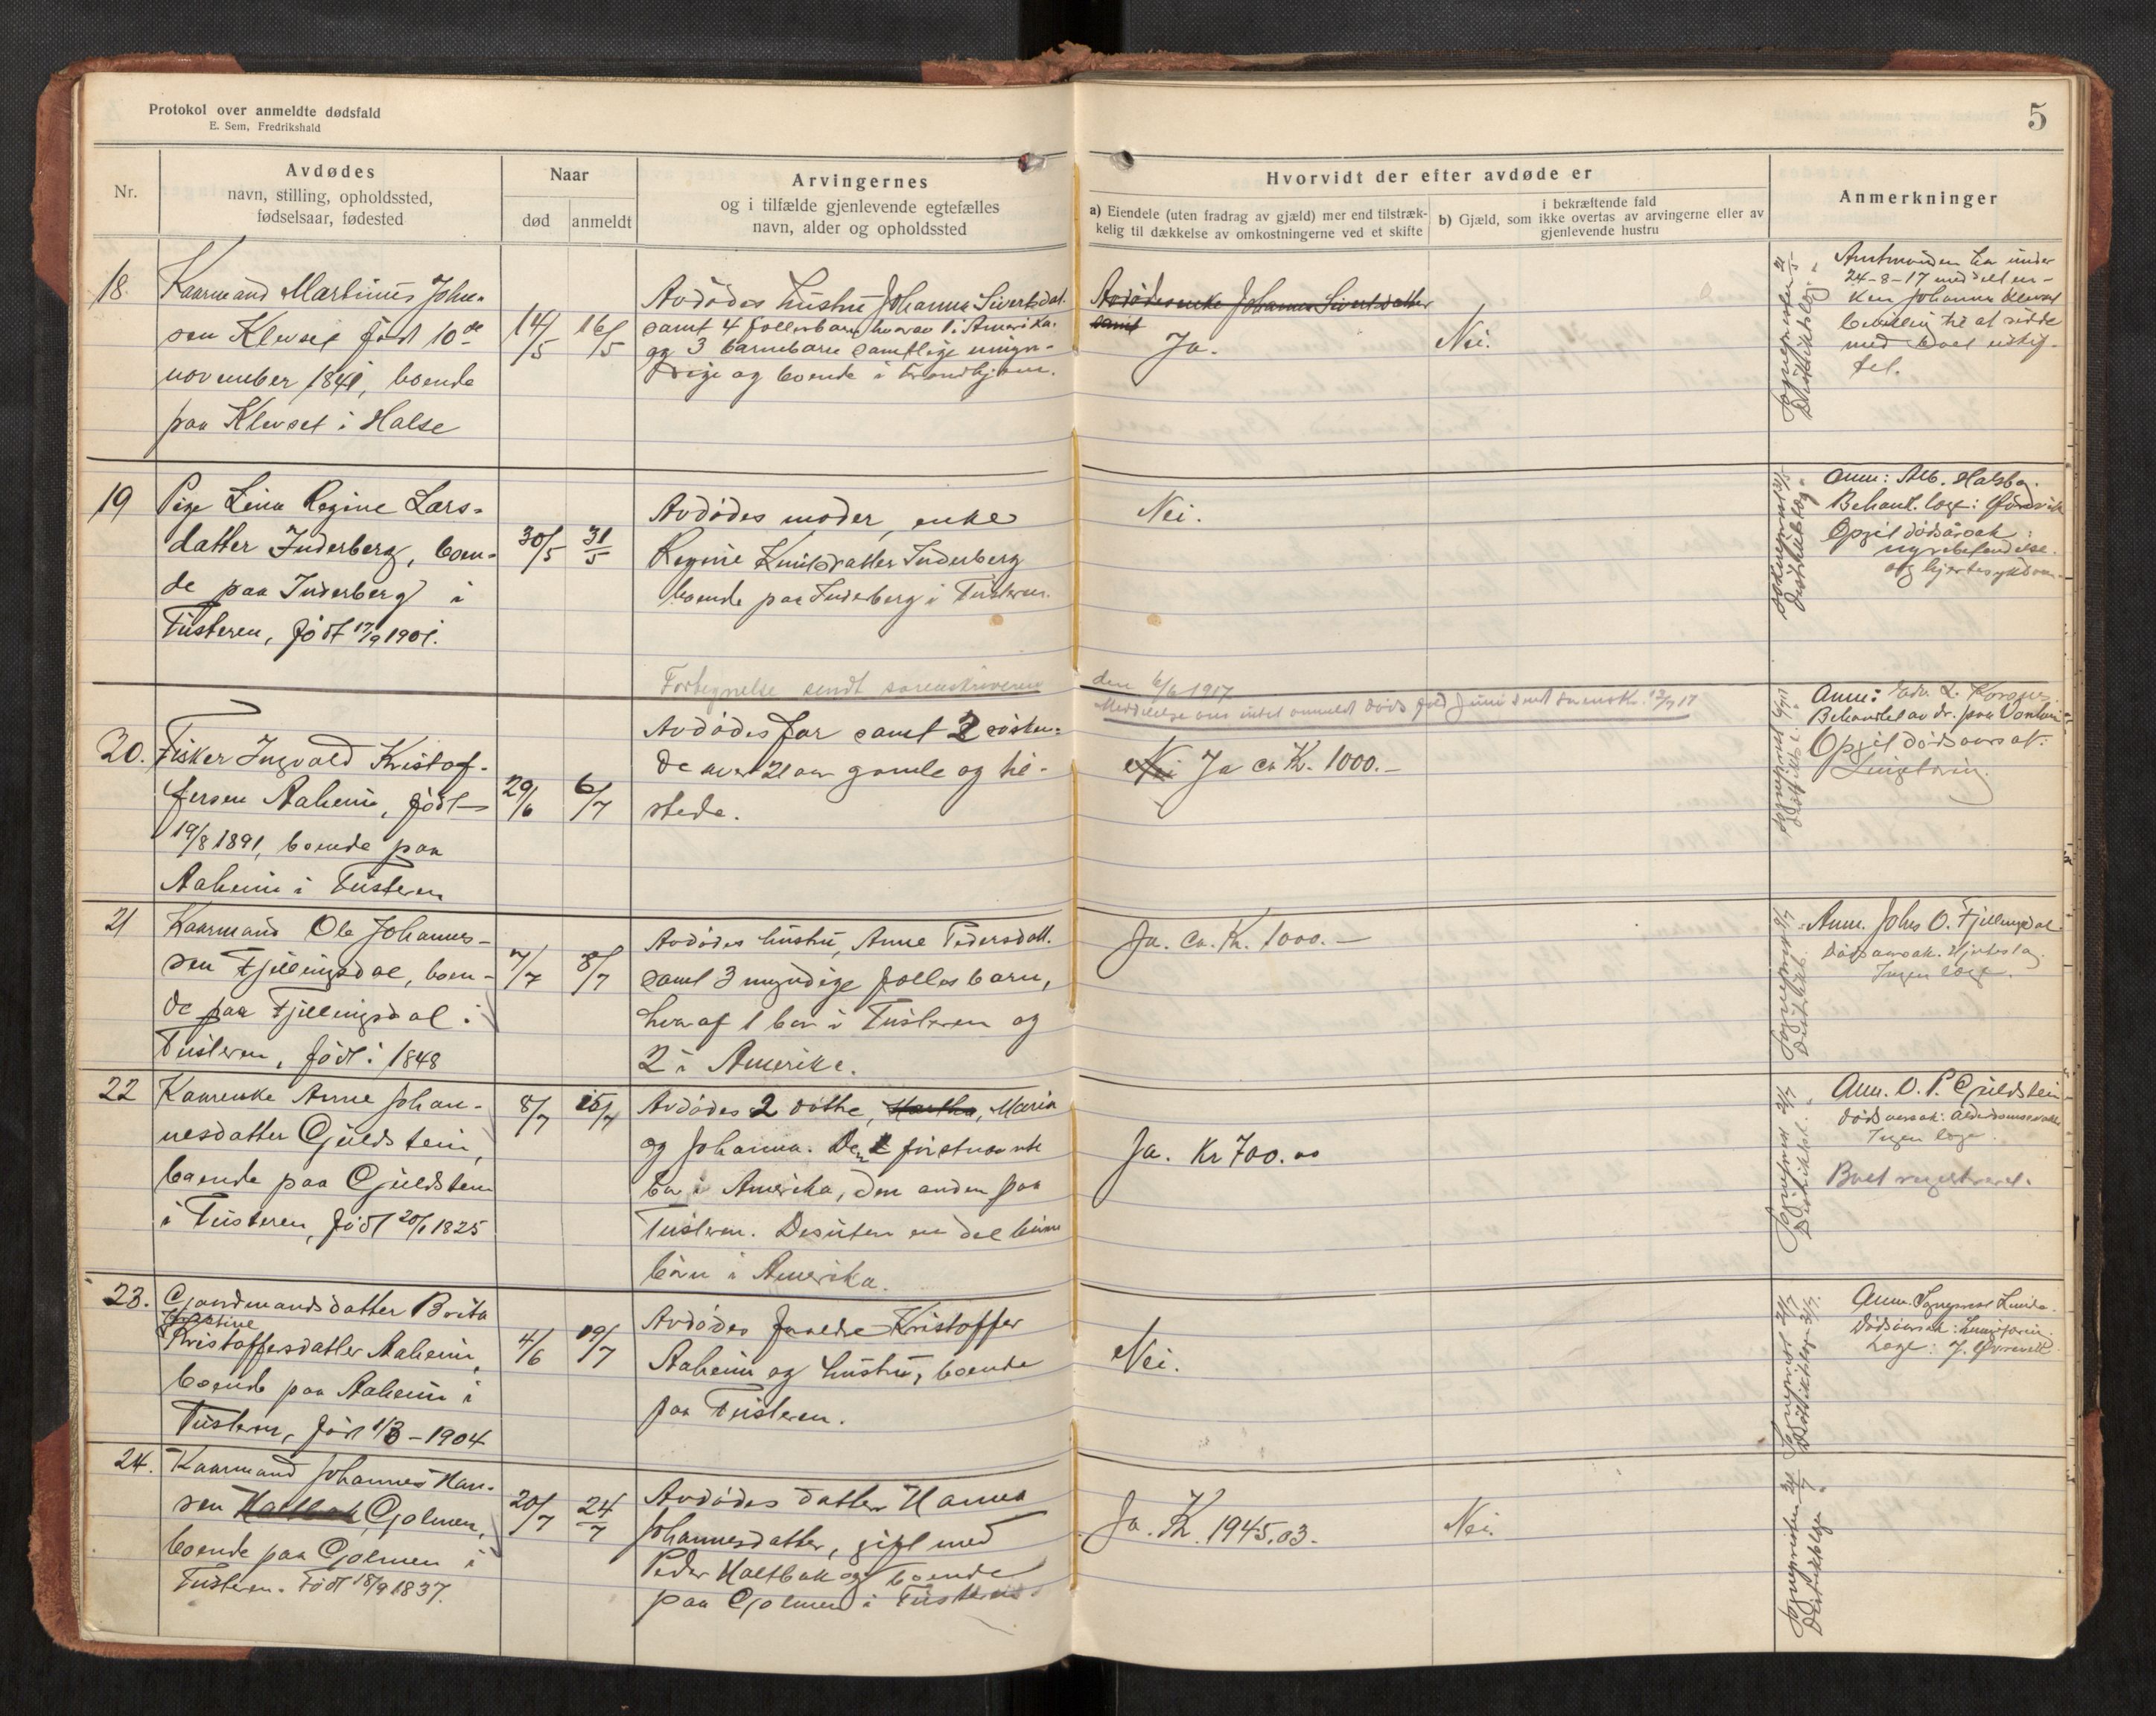 Protokol over anmeldte dødsfald
E. Sem, Fredrikshald
5
Nr.
Avdødes
navn, stilling, opholdssted,
fødselsaar, fødested
Naar
død
anmeldt
Arvingernes
og i tilfælde gjenlevende egtefælles
navn, alder og opholdssted
Hvorvidt der efter avdøde er
a) Eiendele (uten fradrag av gjæld) mer end tilstræk-
kelig til dækkelse av omkostningerne ved et skifte
i bekræftende fald
b) Gjæld, som ikke overtas av arvingerne eller av
gjenlevende hustru
Anmerkninger
18.
Kaarmand Martinus John-
sen Klevset født 10de
november 1841, boende
paa Klevset i Halse
14/5
16/5
Avdødes hustru Johanna Sivertsdat.
samt 4 fellesbarn, hvorav 1 i Amerika.
og 3 barnebarn samtlige umyn-
dige og boende i Trondhjem.
Avdødes enke Johanna Sivertsdatter
samt
Ja.
Nei.
Amtmanden har under
24-8-17 meddelt en-
ken Johanna Klevset
bevilling til at sidde
med boet uskif-
tet.
19
Pige Lina Regine Lars-
datter Inderberg, boen-
de paa Inderberg i
Tusteren, født 17/9 1901.
30/5
31/5
Avdødes moder, enke
Regine Knutsdatter Inderberg
boende paa Inderberg i Tusteren.
Nei.
Anm: Alb. Halsbog.
Behandl. læge:
Opgit dødsårsak:
nyrebetendelse
og hjertesykdom.
Fortegnelse sendt sorenskriveren
den 6/6 1917
Meddelelse om intet anmeldt døds fald Juni sendt sorensk. 12/7 17
20.
Fisker Ingvald Kristof-
fersen Aaheim, født
19/8 1891, boende paa
Aaheim i Tusteren
29/6
6/7
Avdødes far samt 2 søsken-
de over 21 aar gamle og til-
stede.
Nei Ja ca K. 1000.-
Anm:
Behandlet av dr. paa
Opgit dødsaarsak:
21
Kaarmand Ole Johannes-
sen Fjellingsdal, boen-
de paa Fjellingsdal i
Tusteren, født i 1848
7/7
8/7
Avdødes hustru, Anne Pedersdatt.
samt 3 myndige fellesbarn,
hvoraf 1 bor i Tusteren og
2 i Amerika.
Ja. Ca. Kr. 1000.-
Anm. Johs O. Fjellingsdal
Dødsaarsak. Hjerteslag
Ingen læge.
22
Kaarenke Anne Johan-
nesdatter Gjuldstein,
boende paa Gjuldstein
i Tusteren, født 20/1 1825
8/7
15/7
Avdødes 2 døttre, Martha, Maria
og Johanna. Den førstnævnte
bor i Amerika, den anden paa
Tusteren. Desuten en del barne
børn i Amerika.
Ja. Kr 700.00
Anm. O. P. Gjuldstein
Dødsaarsak: Alderdomssvakhet
Ingen læge.
Boet registreret.
23.
Gaardmandsdatter Brita
Kristoffersdatter Aaheim,
boende paa Aaheim i
Tusteren, født 1/3-1904
4/6
19/7
Avdødes forældre Kristoffer
Aaheim og hustru, boende
paa Tusteren.
Nei.
Anm. Sogneprest
Dødsaarsak:
Læge:
24.
Kaarmand Johannes Han-
sen Haltbak Gjolmen,
boende paa Gjolmen i
Tusteren. Født 18/9 1837.
20/7
24/7
Avdødes datter Hanna
Johannesdatter, gift med
Peder Haltbak og boende
paa Gjolmen i Tusteren
Ja. K. 1945.03.
Nei.